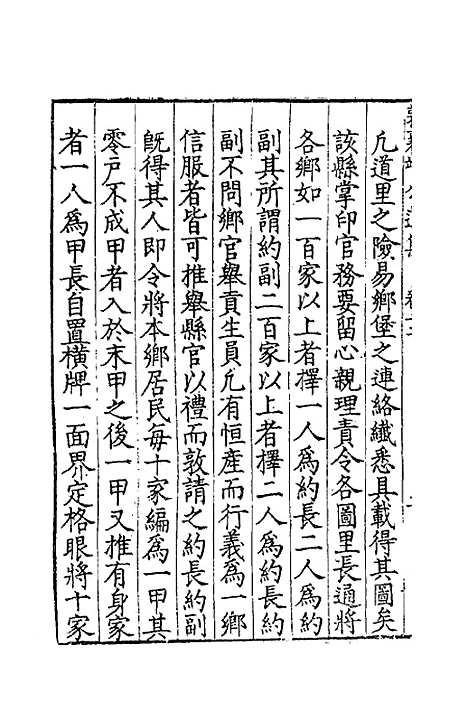 凢道里之險易鄉堡之連絡纖悉具載得其圖矣
該縣掌印官務要留心親理責令各圖里長通將
各鄉如一百家以上者擇一人爲約長二人爲約
副其所謂約副二百家以上者擇二人爲約長約
副不問鄉官舉貢生員凢有恒產而行義爲一鄉
信服者皆可推舉縣官以禮而敦請之約長約副
旣得其人即令將本鄉居民每十家編爲一甲其
零戶不成甲者入於末甲之後一甲又推有身家
者一人爲甲長自置橫牌一面界定格眼將十家